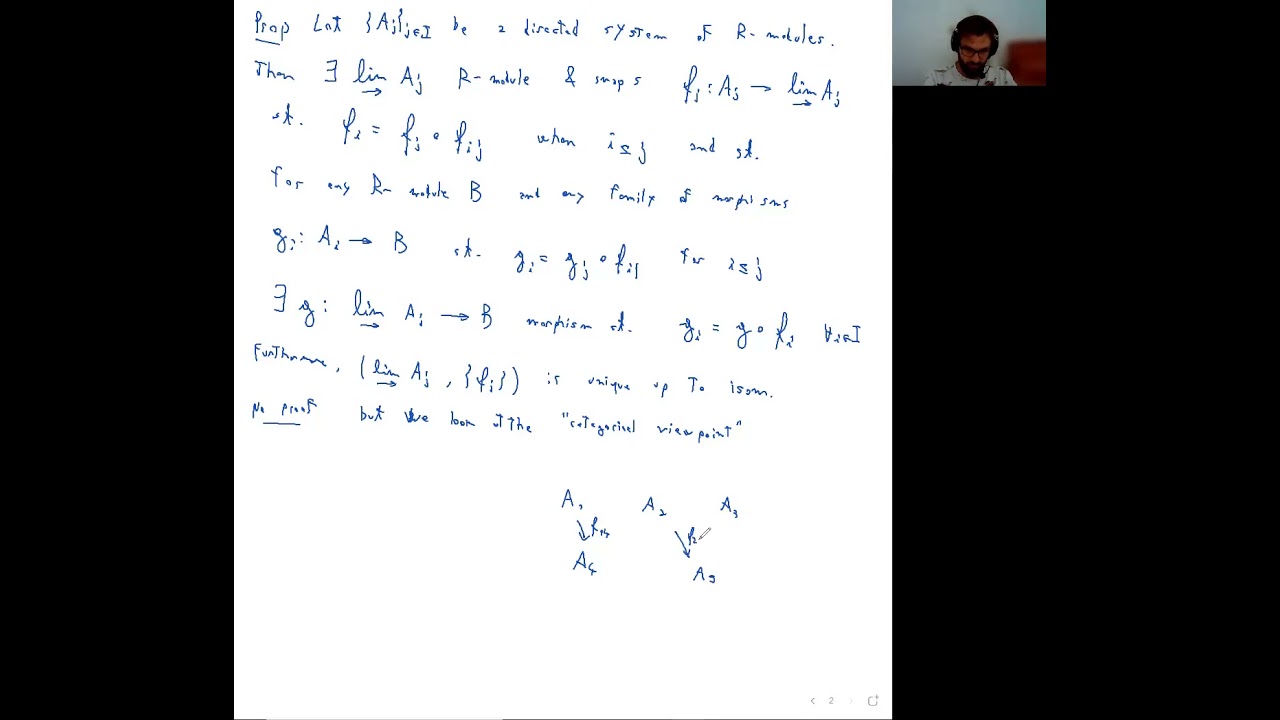 Prop Let {A_j}_{j∈I} be a directed system of R-modules.
Then ∃ lim→ A_j R-module & maps f_j : A_j → lim→ A_j
st. f_i = f_j ∘ f_ij when i ≤ j and st.
for any R-module B and any family of morphisms
g_i : A_i → B st. g_i = g_j ∘ f_ij for i ≤ j
∃ g : lim→ A_j → B morphism st. g_i = g ∘ f_i ∀i∈I
Furthermore, (lim→ A_j, {f_j}) is unique up to isom.
No proof but we look at the "categorical viewpoint"
A_1 A_2 A_3
f_14 f_2
A_4 A_5
2